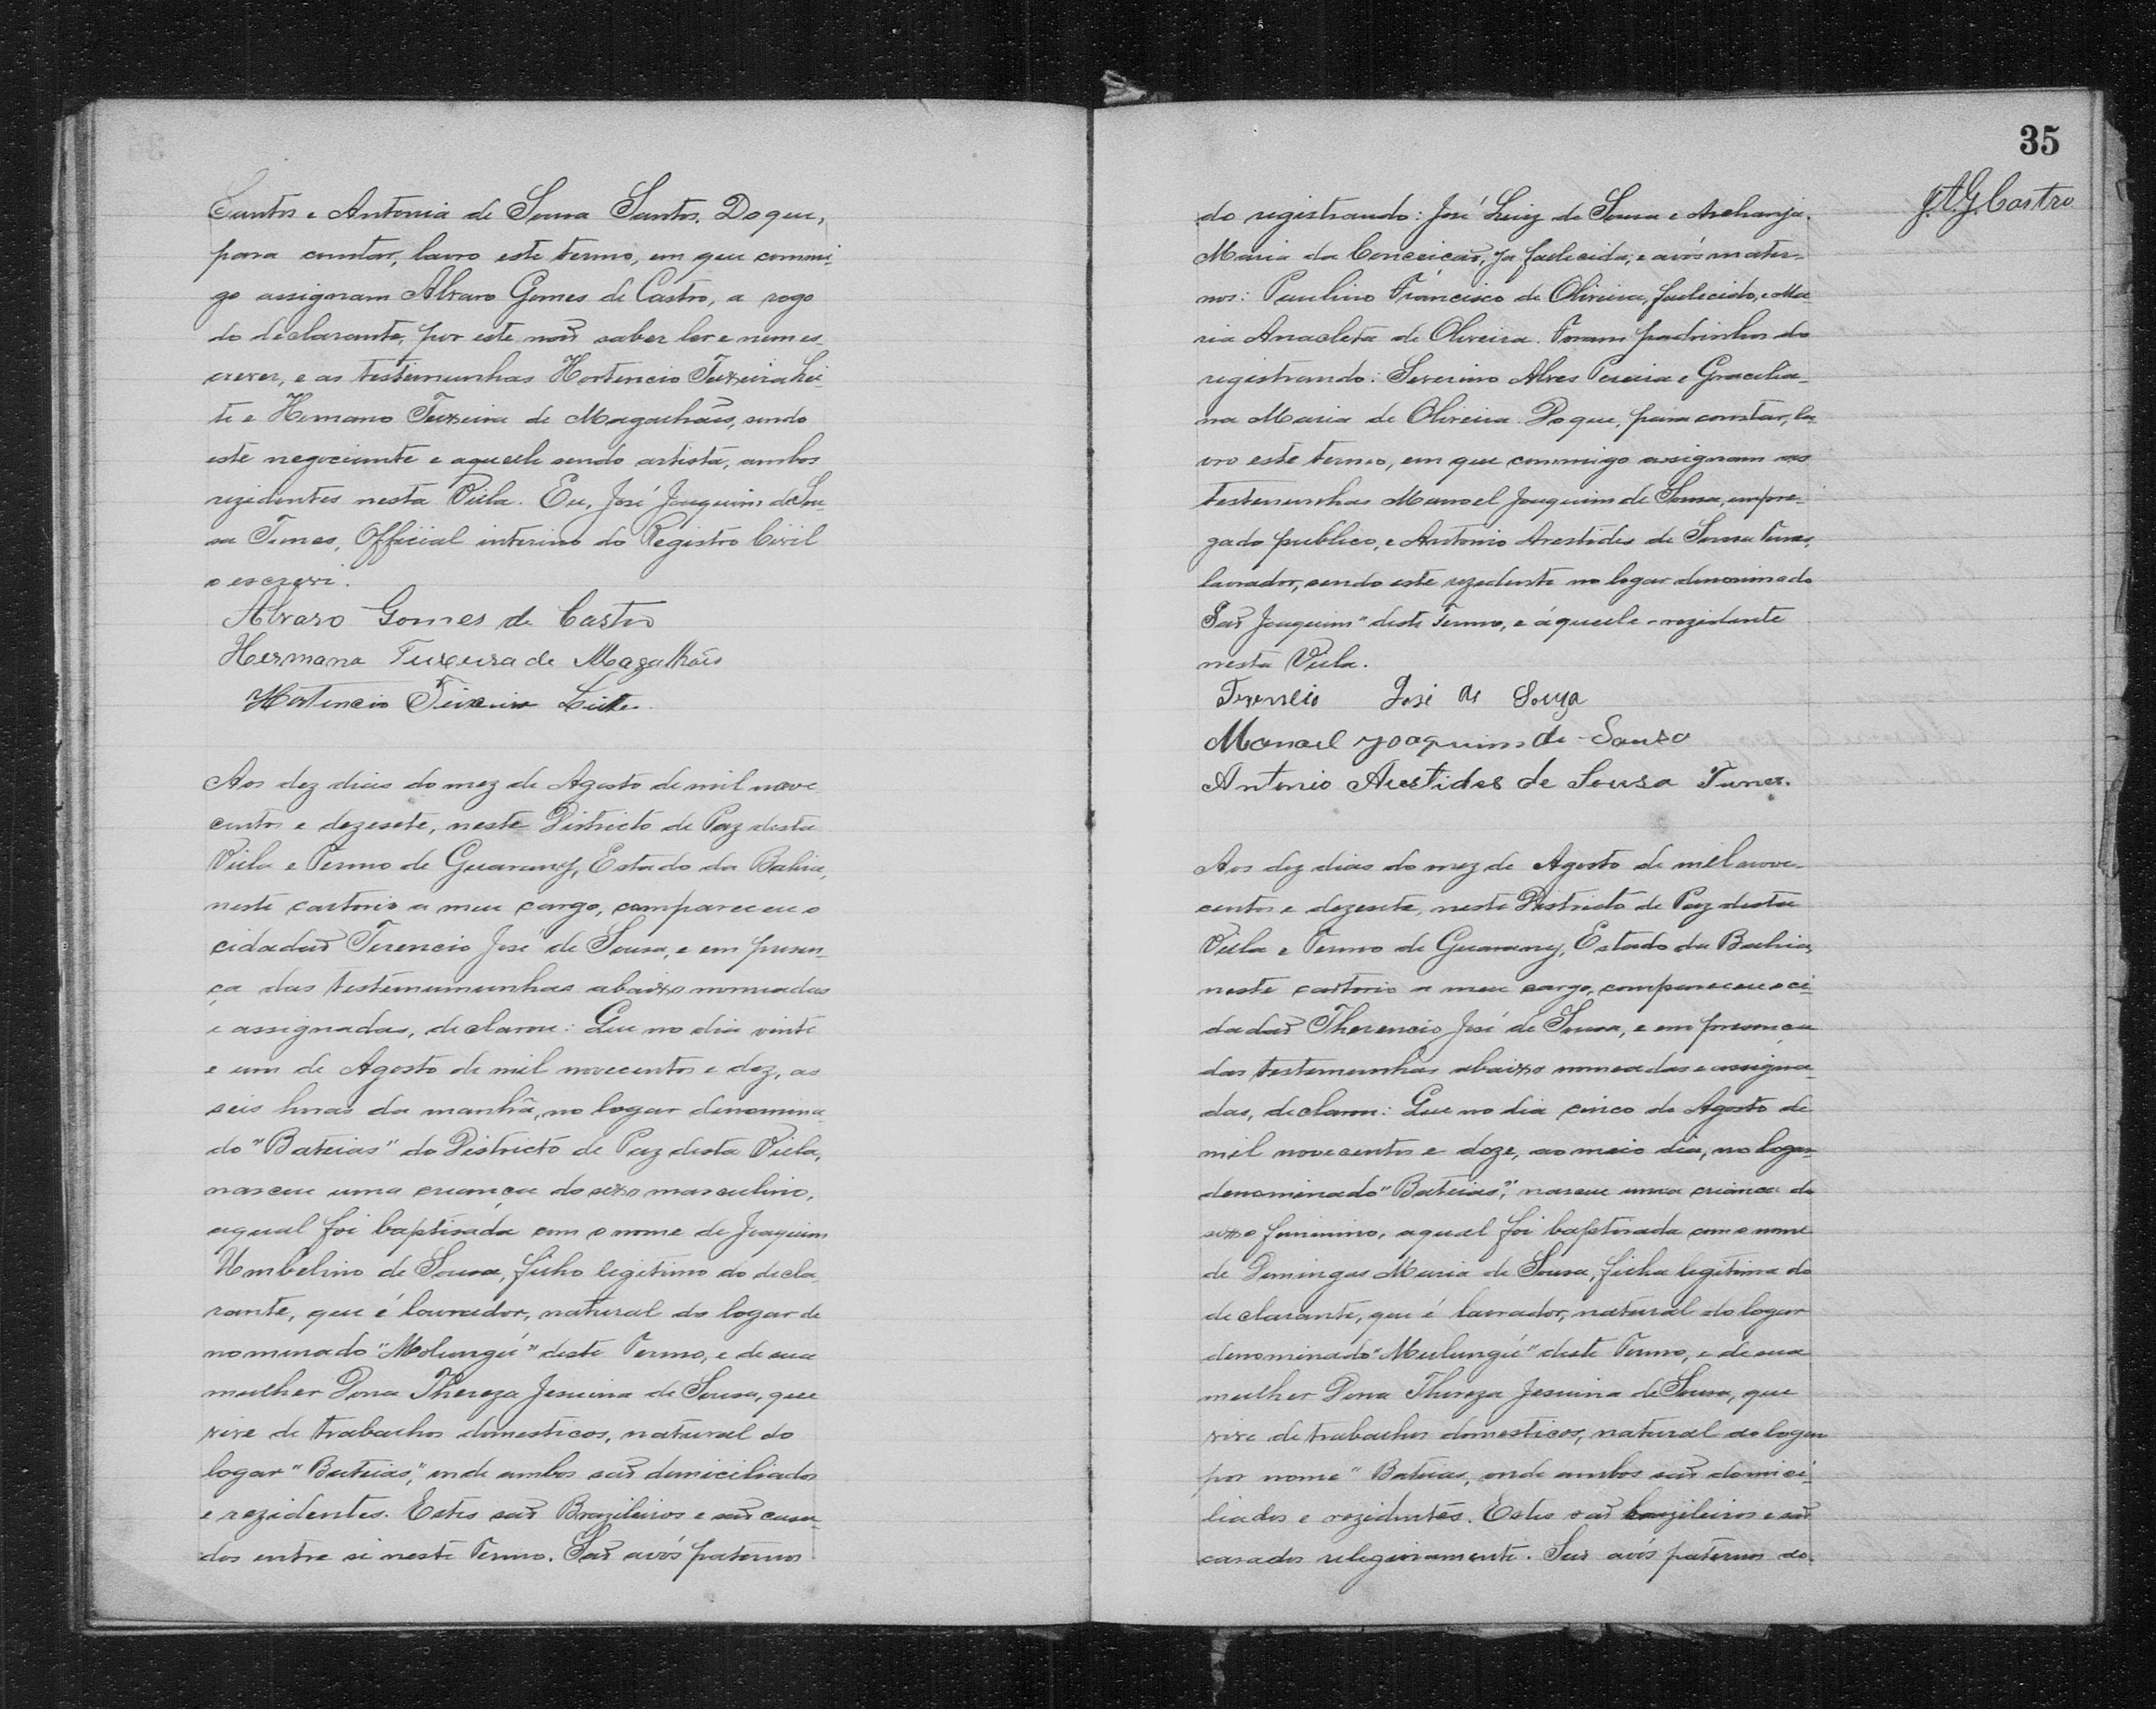 Santos e Antonia de Sousa Santos. Do que,
para constar, lavro este termo, em que commi-
go assignam Alvaro Gomes de Castro, a rogo
do declarante, por este não saber ler e nem es-
crever, e as testimunhas Hortencio Teixeira Lei-
te e Hermano Teixeira de Magalhães, sendo
este negociante e aquelle sendo artista, ambos
rezidentes nesta Villa. Eu, José Joaquim de Sou-
sa Tunes, Official interino do Registro Civil
o escrevi.
Alvaro Gomes de Castro
Hermano Teixeira de Magalhães
Hortencio Teixeira Leite.
Aos dez dias do mez de Agosto de mil nove
centos e dezesete, neste Districto de Paz desta
Villa e Termo de Guarany, Estado da Bahia,
neste cartorio a meu cargo, compareceu o
cidadão Terencio José de Sousa, e em presen-
ça das testemumunhas abaixo nomeadas
e assignadas, declarou: Que no dia vinte
e um de Agosto de mil novecentos e dez, as
seis horas da manhã, no logar denomina-
do "Bateias" do Districto de Paz desta Villa,
nasceu uma criança do sexo masculino,
aqual foi baptisada com o nome de Joaquim
Umbelino de Sousa, filho legitimo do decla-
rante, que é lavrador, natural do logar de
nominado "Molungú" deste Termo, e de sua
mulher Dona Thereza Jesuina de Sousa, que
vive de trabalhos domesticos, natural do
logar "Bateias", onde ambos são domiciliados
e rezidentes. Estes são Brazileiros e são casa-
dos entre si neste Termo. São avós paternos
35
J. A. G. Castro
do registrando: José Luiz de Sousa e Archanja
Maria da Conceição, ja fallecida; e avós mater-
nos: Paulino Francisco de Oliveira, fallecido, e Ma
ria Anacleta de Oliveira. Foram padrinhos do
registrando: Severino Alves Pereira e Gracilia-
na Maria de Oliveira. Do que, para constar, la-
vro este termo, em que commigo assignam as
testemunhas Manoel Joaquim de Sousa, empre-
gado publico, e Antonio Arestides de Sousa Tunes,
lavrador, sendo este rezidente no logar denominado
São Joaquim" deste Termo, e áquelle rezidente
nesta Villa.
Terencio José de Souza
Manoel Joaquim de Souza
Antonio Arestides de Sousa Tunes.
Aos dez dias do mez de Agosto de mil nove-
centos e dezesete, neste Districto de Paz desta
Villa e Termo de Guarany, Estado da Bahia,
neste cartorio a meu cargo, compareceu o ci-
dadão Therencio José de Sousa, e em presença
das testemunhas abaixo nomeadas e assigna-
das, declarou: Que no dia cinco de Agosto de
mil novecentos e doze, ao meio dia, no logar
denominado "Bateias", nasceu uma criança do
sexo feminino, aqual foi baptisada com o nome
de Domingas Maria de Sousa, filha legitima do
declarante, que é lavrador, natural do logar
denominado "Mulungú" deste Termo, e de sua
mulher Dona Thereza Jesuina de Sousa, que
vive de trabalhos domesticos, natural do logar
por nome "Bateias, onde ambos são domici-
liados e rezidentes. Estes são brazileiros e são
casados religiosamente. São avós paternos do